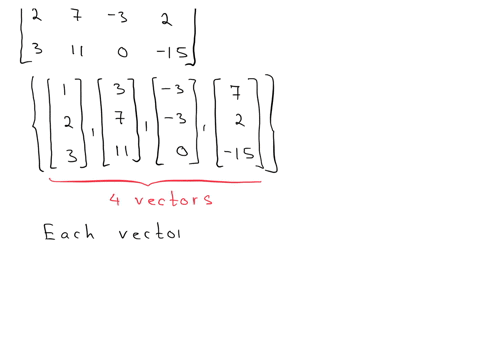 2 7 -3 2
3 11 0 -15
{[1 2 3], [3 7 11], [-3 -3 0], [7 2 -15]}
4 vectors
Each vector